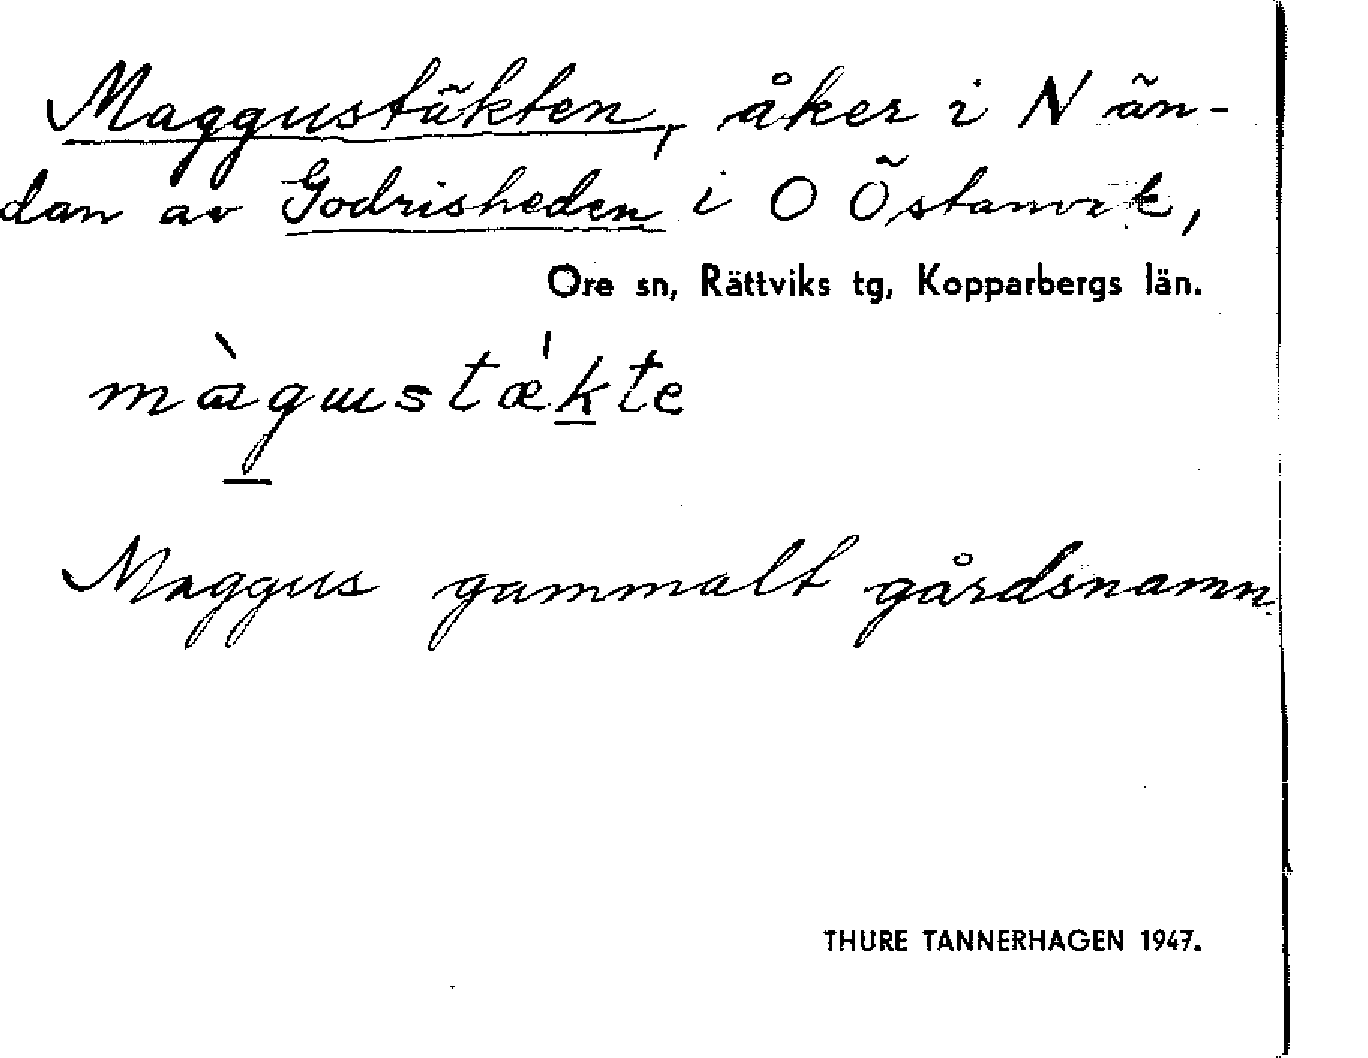 Maggustäkten, åker i N än-
dan av Godrisheden i O Östanvik,
Ore sn, Rättviks tg, Kopparbergs län.
màgɯstǽkte
Maggus gammalt gårdsnamn
THURE TANNERHAGEN 1947.